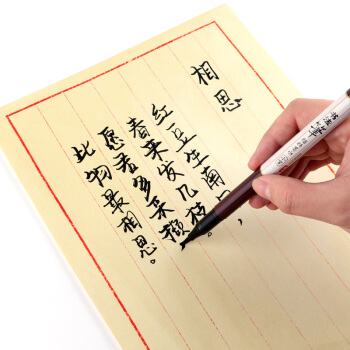 相思
红豆生南
春来发几枝。
愿君多采撷，
此物最相思。